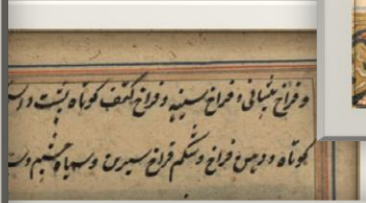 و فراخ پیشانی و فراخ سینه و فراخ کتف کوتاه پشت و راست
کوتاه و دهن فراخ و شکم فراخ سیرین و سیاه چشم و